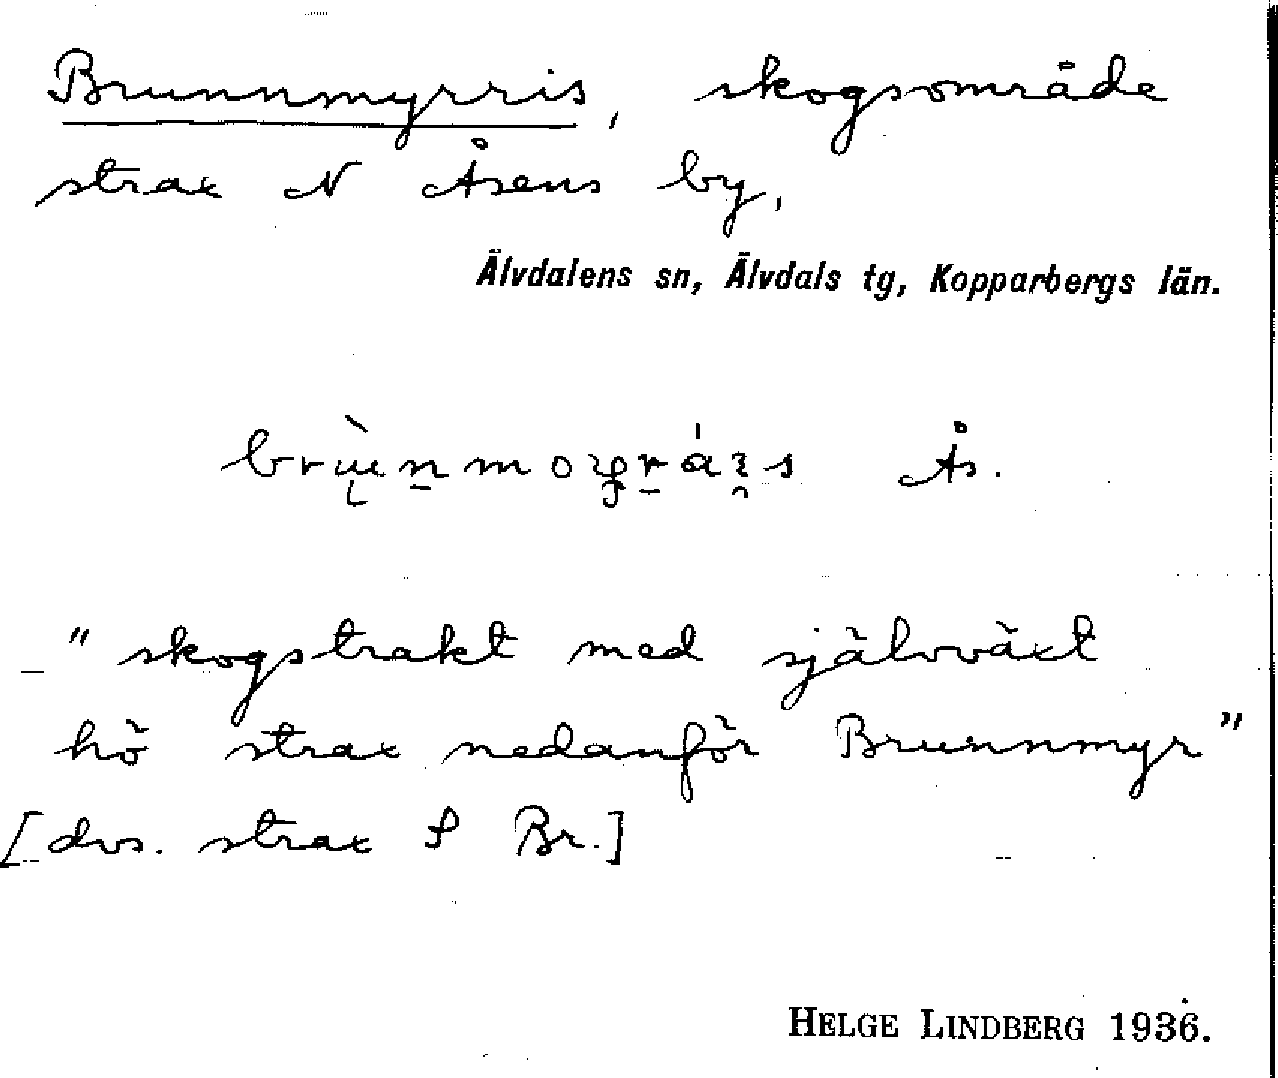 Brunnmyrris, skogsområde
strax N Åsens by,
Älvdalens sn, Älvdals tg, Kopparbergs län.
Ås.
"skogstrakt med självväxt
hö strax nedanför Brunnmyr"
[dvs. strax S Br.]
HELGE LINDBERG 1936.